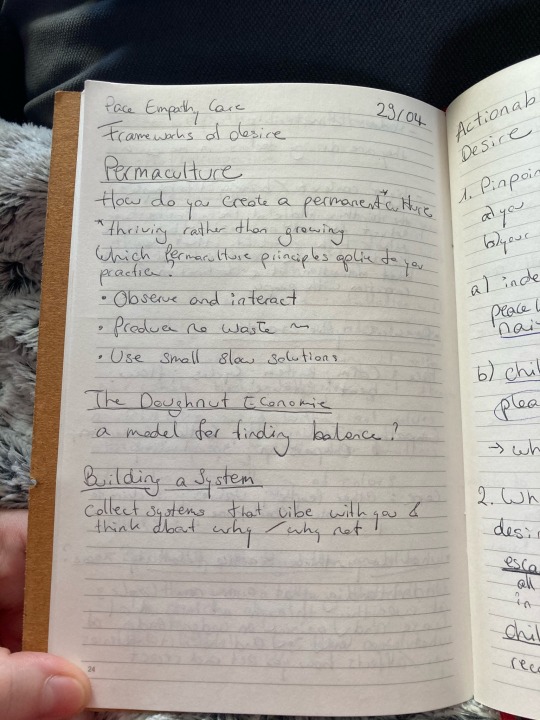 Pace Empathy Care
29/04
Frameworks of desire
Permaculture
How do you create a permanent* culture
* thriving rather than growing
Which permaculture principles aplie to you
practice?
• Observe and interact
• Produce no waste ~
• Use small slow solutions
The Doughnut Economie
a model for finding balance?
Building a System
Collect systems that vibe with you &
think about why / why not
24
Actionab
Desire
1. Pinpoin
a) you
b) your
a) inde
peace
hai
b) chil
plea
→ wh
2. Wh
desi
esca
all
in
chil
rec